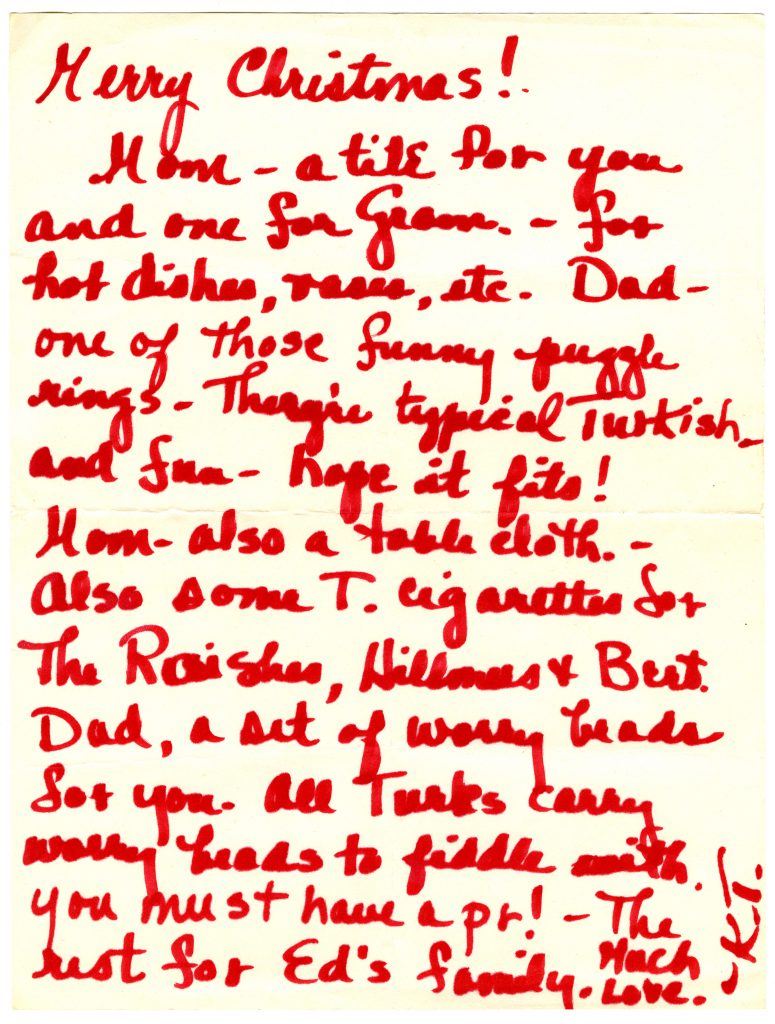 Merry Christmas!
Mom - a tile for you
and one for Gram. - for
hot dishes, vases, etc. Dad -
one of those funny puzzle
rings - They're typical Turkish -
and fun - hope it fits!
Mom - also a table cloth. -
Also some T. cigarettes for
The Raishes, & Bert.
Dad, a set of worry beads
for you. All Turks carry
worry beads to fiddle with.
you must have a pr! - The
rest for Ed's family. Much
Love.
- K.T.